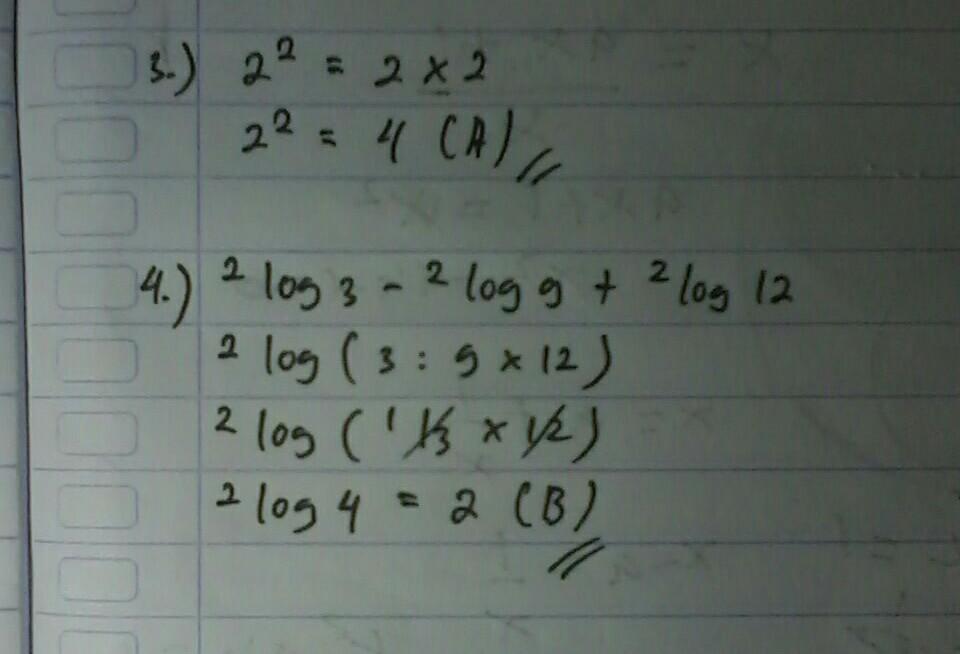 3.) 2² = 2 x 2
2² = 4 (A)
4.) ² log 3 - ² log 9 + ² log 12
² log ( 3 : 9 x 12 )
² log ( 1 1/3 x 12 )
² log 4 = 2 (B)